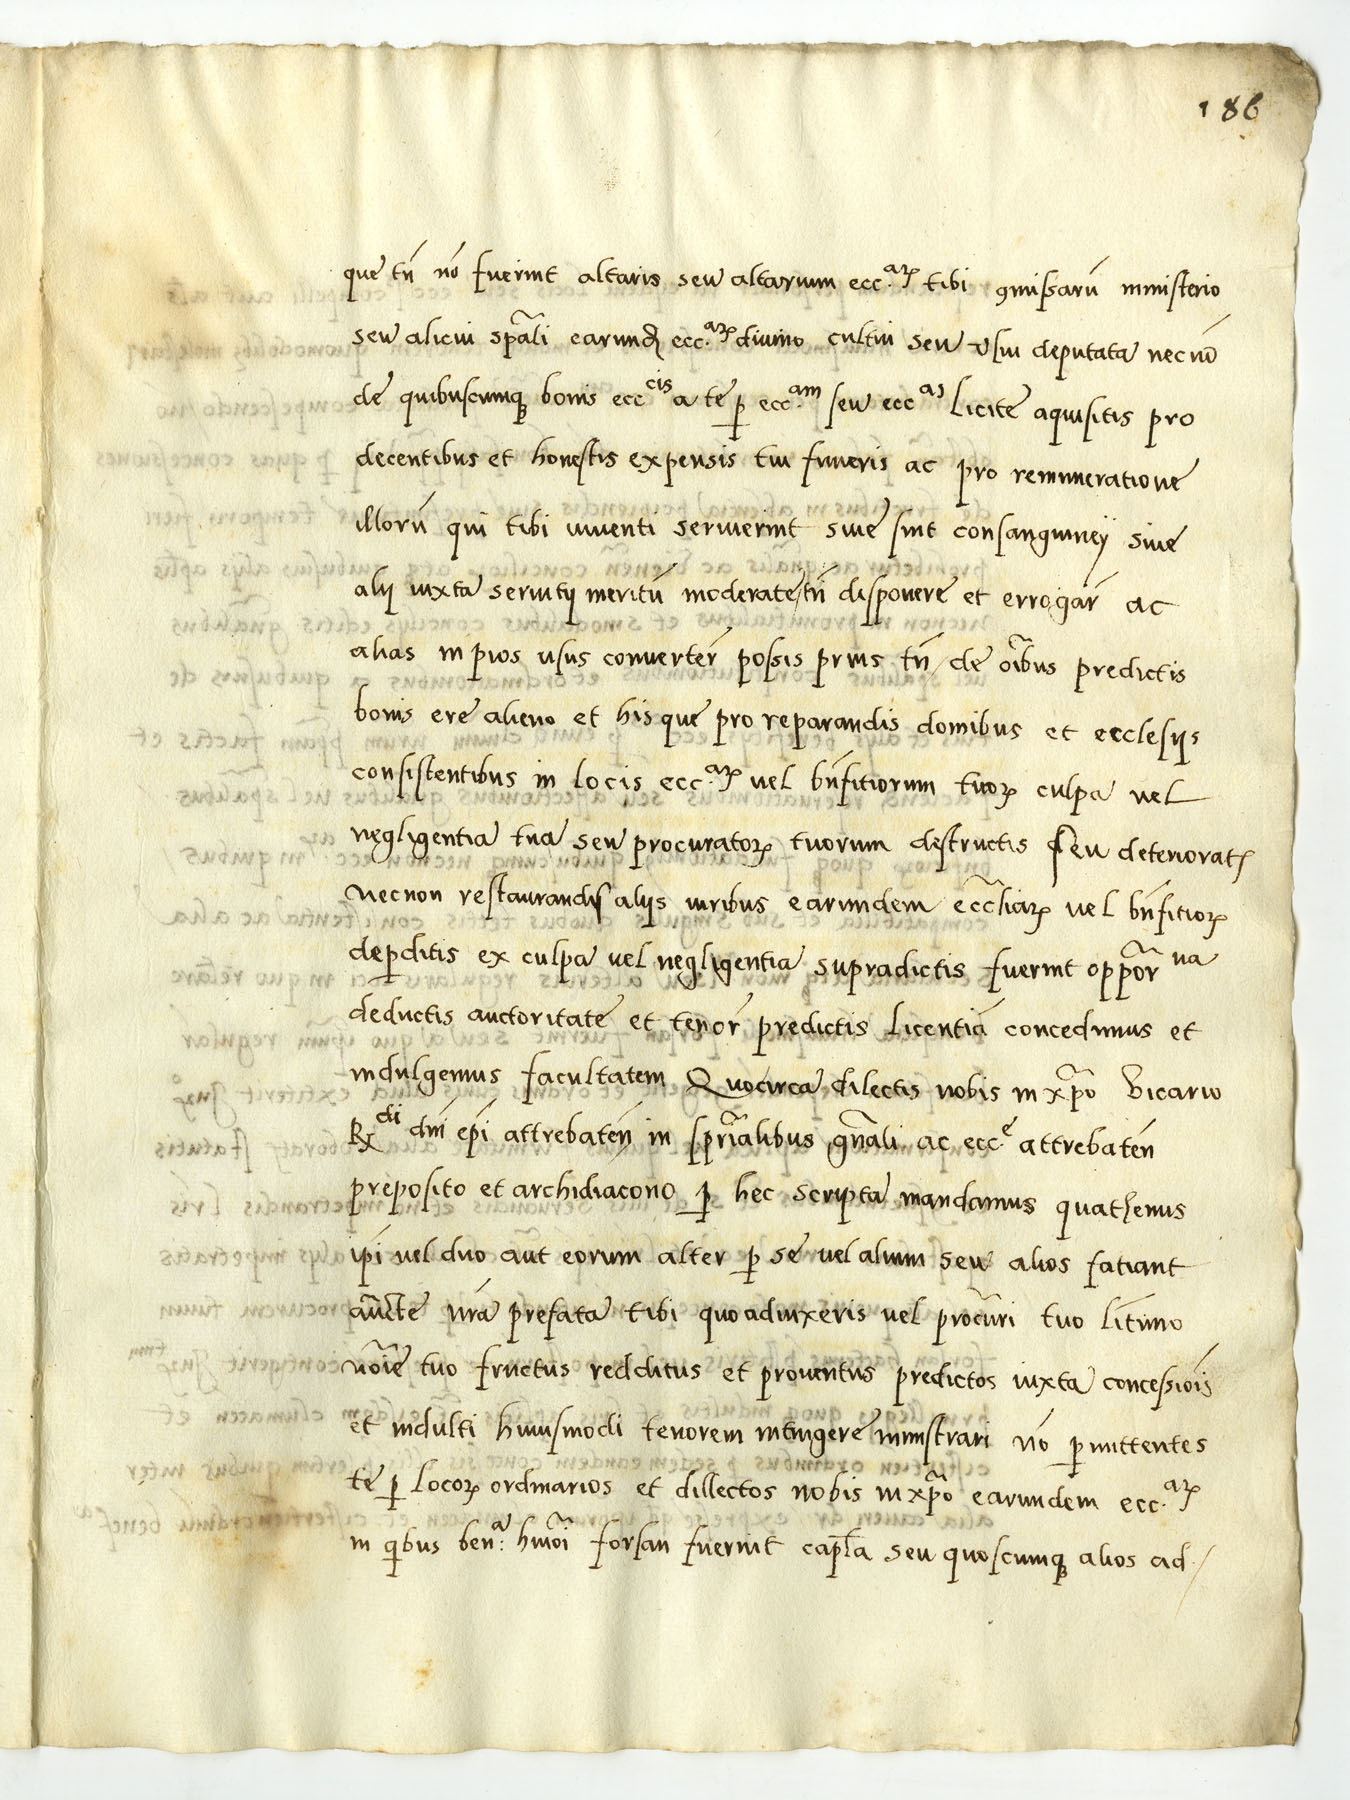 186
que tn̄ nō fuerint altaris seu altarium ecc.aꝝ tibi ꝯmissarū ministerio
seu alicui spāli earundꝫ ecc.aꝝ divino cultui seu vsui deputata necnō
de quibuscumqꝫ bonis ecccis a te ꝑ ecc.am seu eccas licite aquisitis pro
decentibus et honestis expensis tui funeris ac pro remuneratione
illorū qui tibi viventi serviverint sive sint consanguinei sive
alij iuxta servitij meritū moderate tn̄ disponere et errogar̄ ac
alias in pios usus converter̄ possis prius tn̄ de oībus predictis
bonis ere alieno et his que pro reparandis domibus et ecclesijs
consistentibus in locis ecc.aꝝ vel bn̄fitiorum tuoꝝ culpa vel
negligentia tua seu procuratoꝝ tuorum destructis seu deteriorat
necnon restaurandis alijs iuribus earumdem eccliāꝝ vel bn̄fitioꝝ
deꝑditis ex culpa vel negligentia supradictis fuerint oppōrna
deductis auctoritate et tenor̄ predictis licentiā concedimus et
indulgemus facultatem Quocirca dilectis nobis in xp̄o Vicario
Rdi dn̄i ep̄i attrebaten̄ in spr̄ialibus gn̄ali ac ecc.e attrebaten̄
preposito et archidiacono ꝑ hec scripta mandamus quathenus
ip̄i vel duo aut eorum alter ꝑ se vel alium seu alios fatiant
aūcte nr̄a prefata tibi quoaduixeris vel procūri tuo lītimo
noīe tuo fructus redditus et proventus predictos iuxta concessiois̄
et indulti huiusmodi tenorem integere ministrari nō ꝑmittentes
te ꝑ locoꝝ ordinarios et dillectos nobis in xp̄o earumdem ecc.aꝝ
in qibus ben.a hmōi forsan fuerint capl̄a seu quoscumqꝫ alios ad